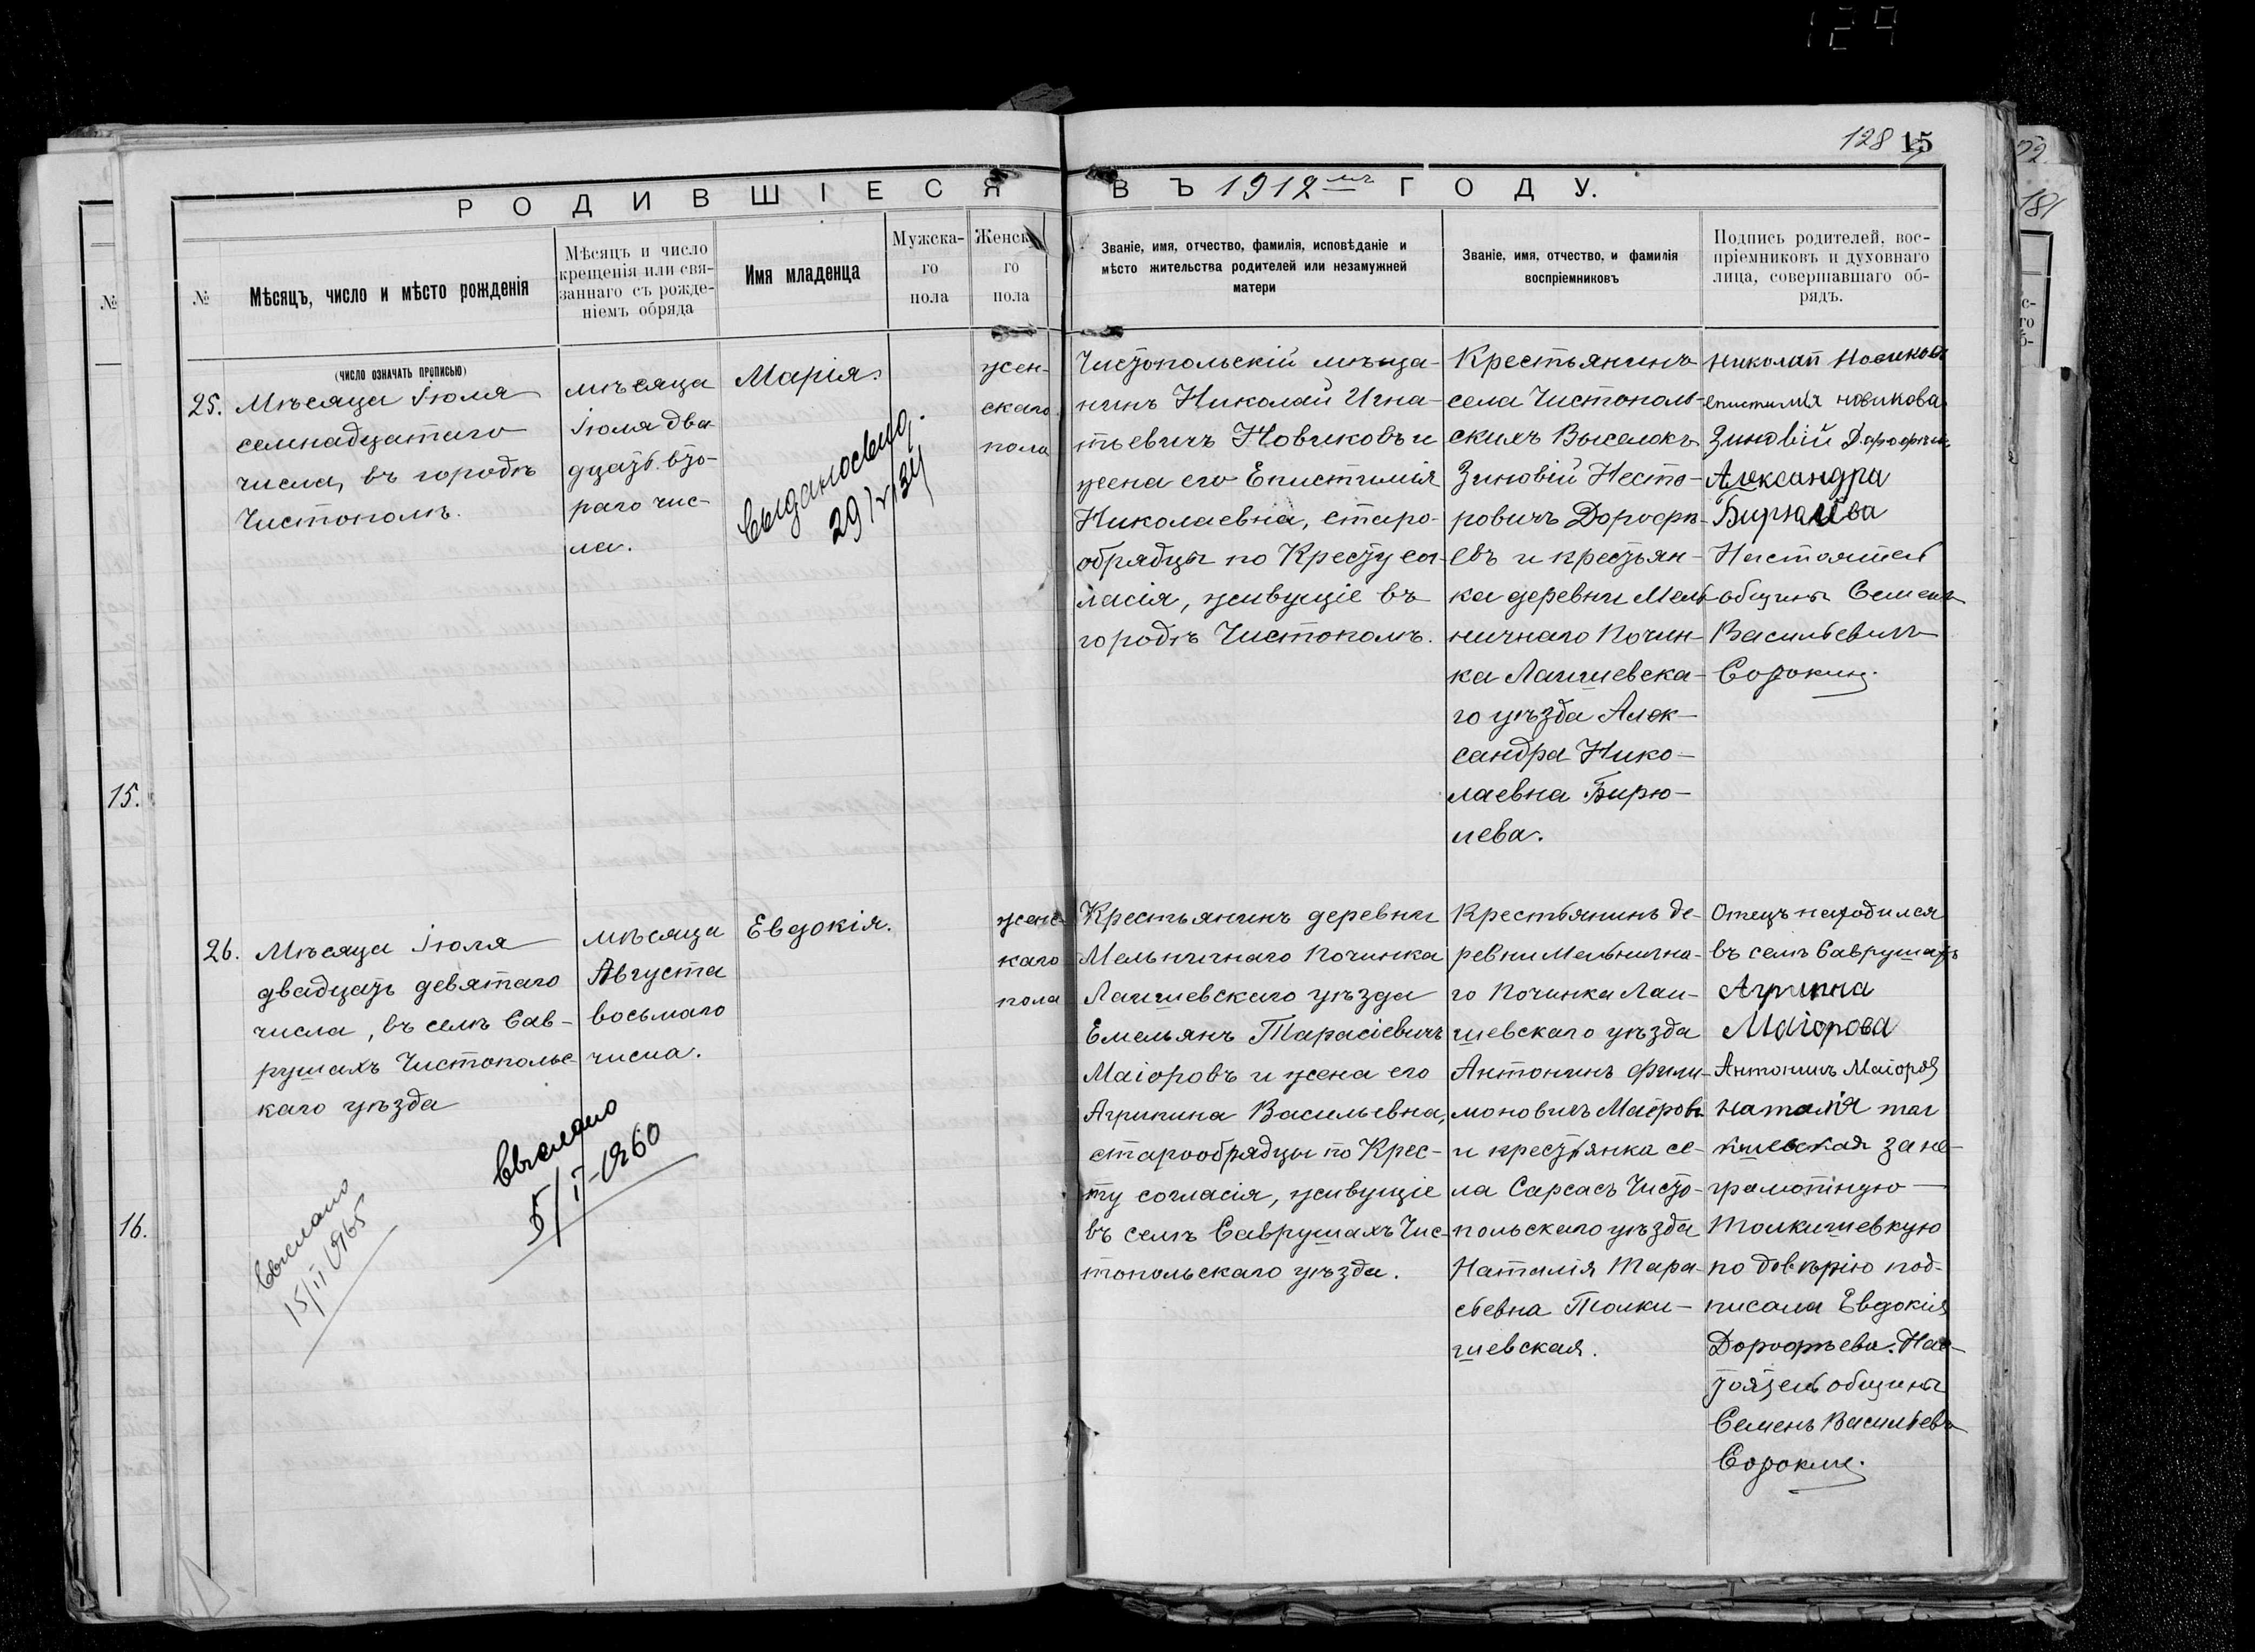 129
128 15
РОДИВШІЕСЯ ВЪ 1912мъ ГОДУ.
№
Мѣсяцъ, число и мѣсто рожденія
(ЧИСЛО ОЗНАЧАТЬ ПРОПИСЬЮ)
Мѣсяцъ и число
крещенія или свя-
заннаго съ рожде-
ніемъ обряда
Имя младенца
Мужска-
го
пола
Женск
го
пола
Званіе, имя, отчество, фамилія, исповѣданіе и
мѣсто жительства родителей или незамужней
матери
Званіе, имя, отчество, и фамилія
воспріемниковъ
Подпись родителей, вос-
пріемниковъ и духовнаго
лица, совершавшаго об-
рядъ.
25.
Мѣсяца Іюля
семнадцатаго
числа, въ городѣ
Чистополѣ.
мѣсяца
Іюля два-
дцать вто-
раго чис-
ла.
Марія.
Выдано свид.
29/V 34
жен-
скаго
пола
Чистопольскій мѣща-
нинъ Николай Игна-
тьевичъ Новиковъ и
жена его Епистимія
Николаевна, старо-
обрядцы по Кресту со-
гласія, живущіе въ
городѣ Чистополѣ.
Крестьянинъ
села Чистополь-
скихъ Выселокъ
Зиновій Несто-
ровичъ Дорофѣ-
евъ и крестьян-
ка деревни Мель-
ничнаго Почин-
ка Лаишевска-
го уѣзда Алек-
сандра Нико-
лаевна Бирю-
лева.
Николай Новиковъ
епистимія новикова
Зиновій Дорофѣевъ
Александра
Бирюлева
Настоятель
общины Семенъ
Васильевичъ
Сорокин.
26.
Мѣсяца Іюля
двадцать девятаго
числа, въ селѣ Сав-
рушахъ Чистопольс-
каго уѣзда
мѣсяца
Августа
восьмаго
числа.
Евдокія.
Выслано
5/I-1960
Выслано
15/II 1965
женс-
каго
пола
Крестьянинъ деревни
Мельничнаго Починка
Лаишевскаго уѣзда
Емельянъ Тарасіевичъ
Маіоровъ и жена его
Агрипина Васильевна,
старообрядцы по Крес-
ту согласія, живущіе
въ селѣ Саврушахъ Чис-
топольскаго уѣзда.
Крестьянинъ де-
ревни Мельнична-
го Починка Лаи-
шевскаго уѣзда
Антонинъ Фили-
моновичъ Маіоровъ
и крестьянка се-
ла Сарсасъ Чисто-
польскаго уѣзда
Наталія Тара-
сьевна Толки-
шевская.
Отецъ находился
въ селѣ Саврушахъ
Агрипина
Маіорова
Антонинъ Маіоров
Наталія тол
кишевская за не-
грамотную
Толкишевкую
по довѣрію под-
писала Евдокія
Дорофѣева. Нас-
тоятель общины
Семенъ Васильевъ
Сорокин.
№
15.
16.
181